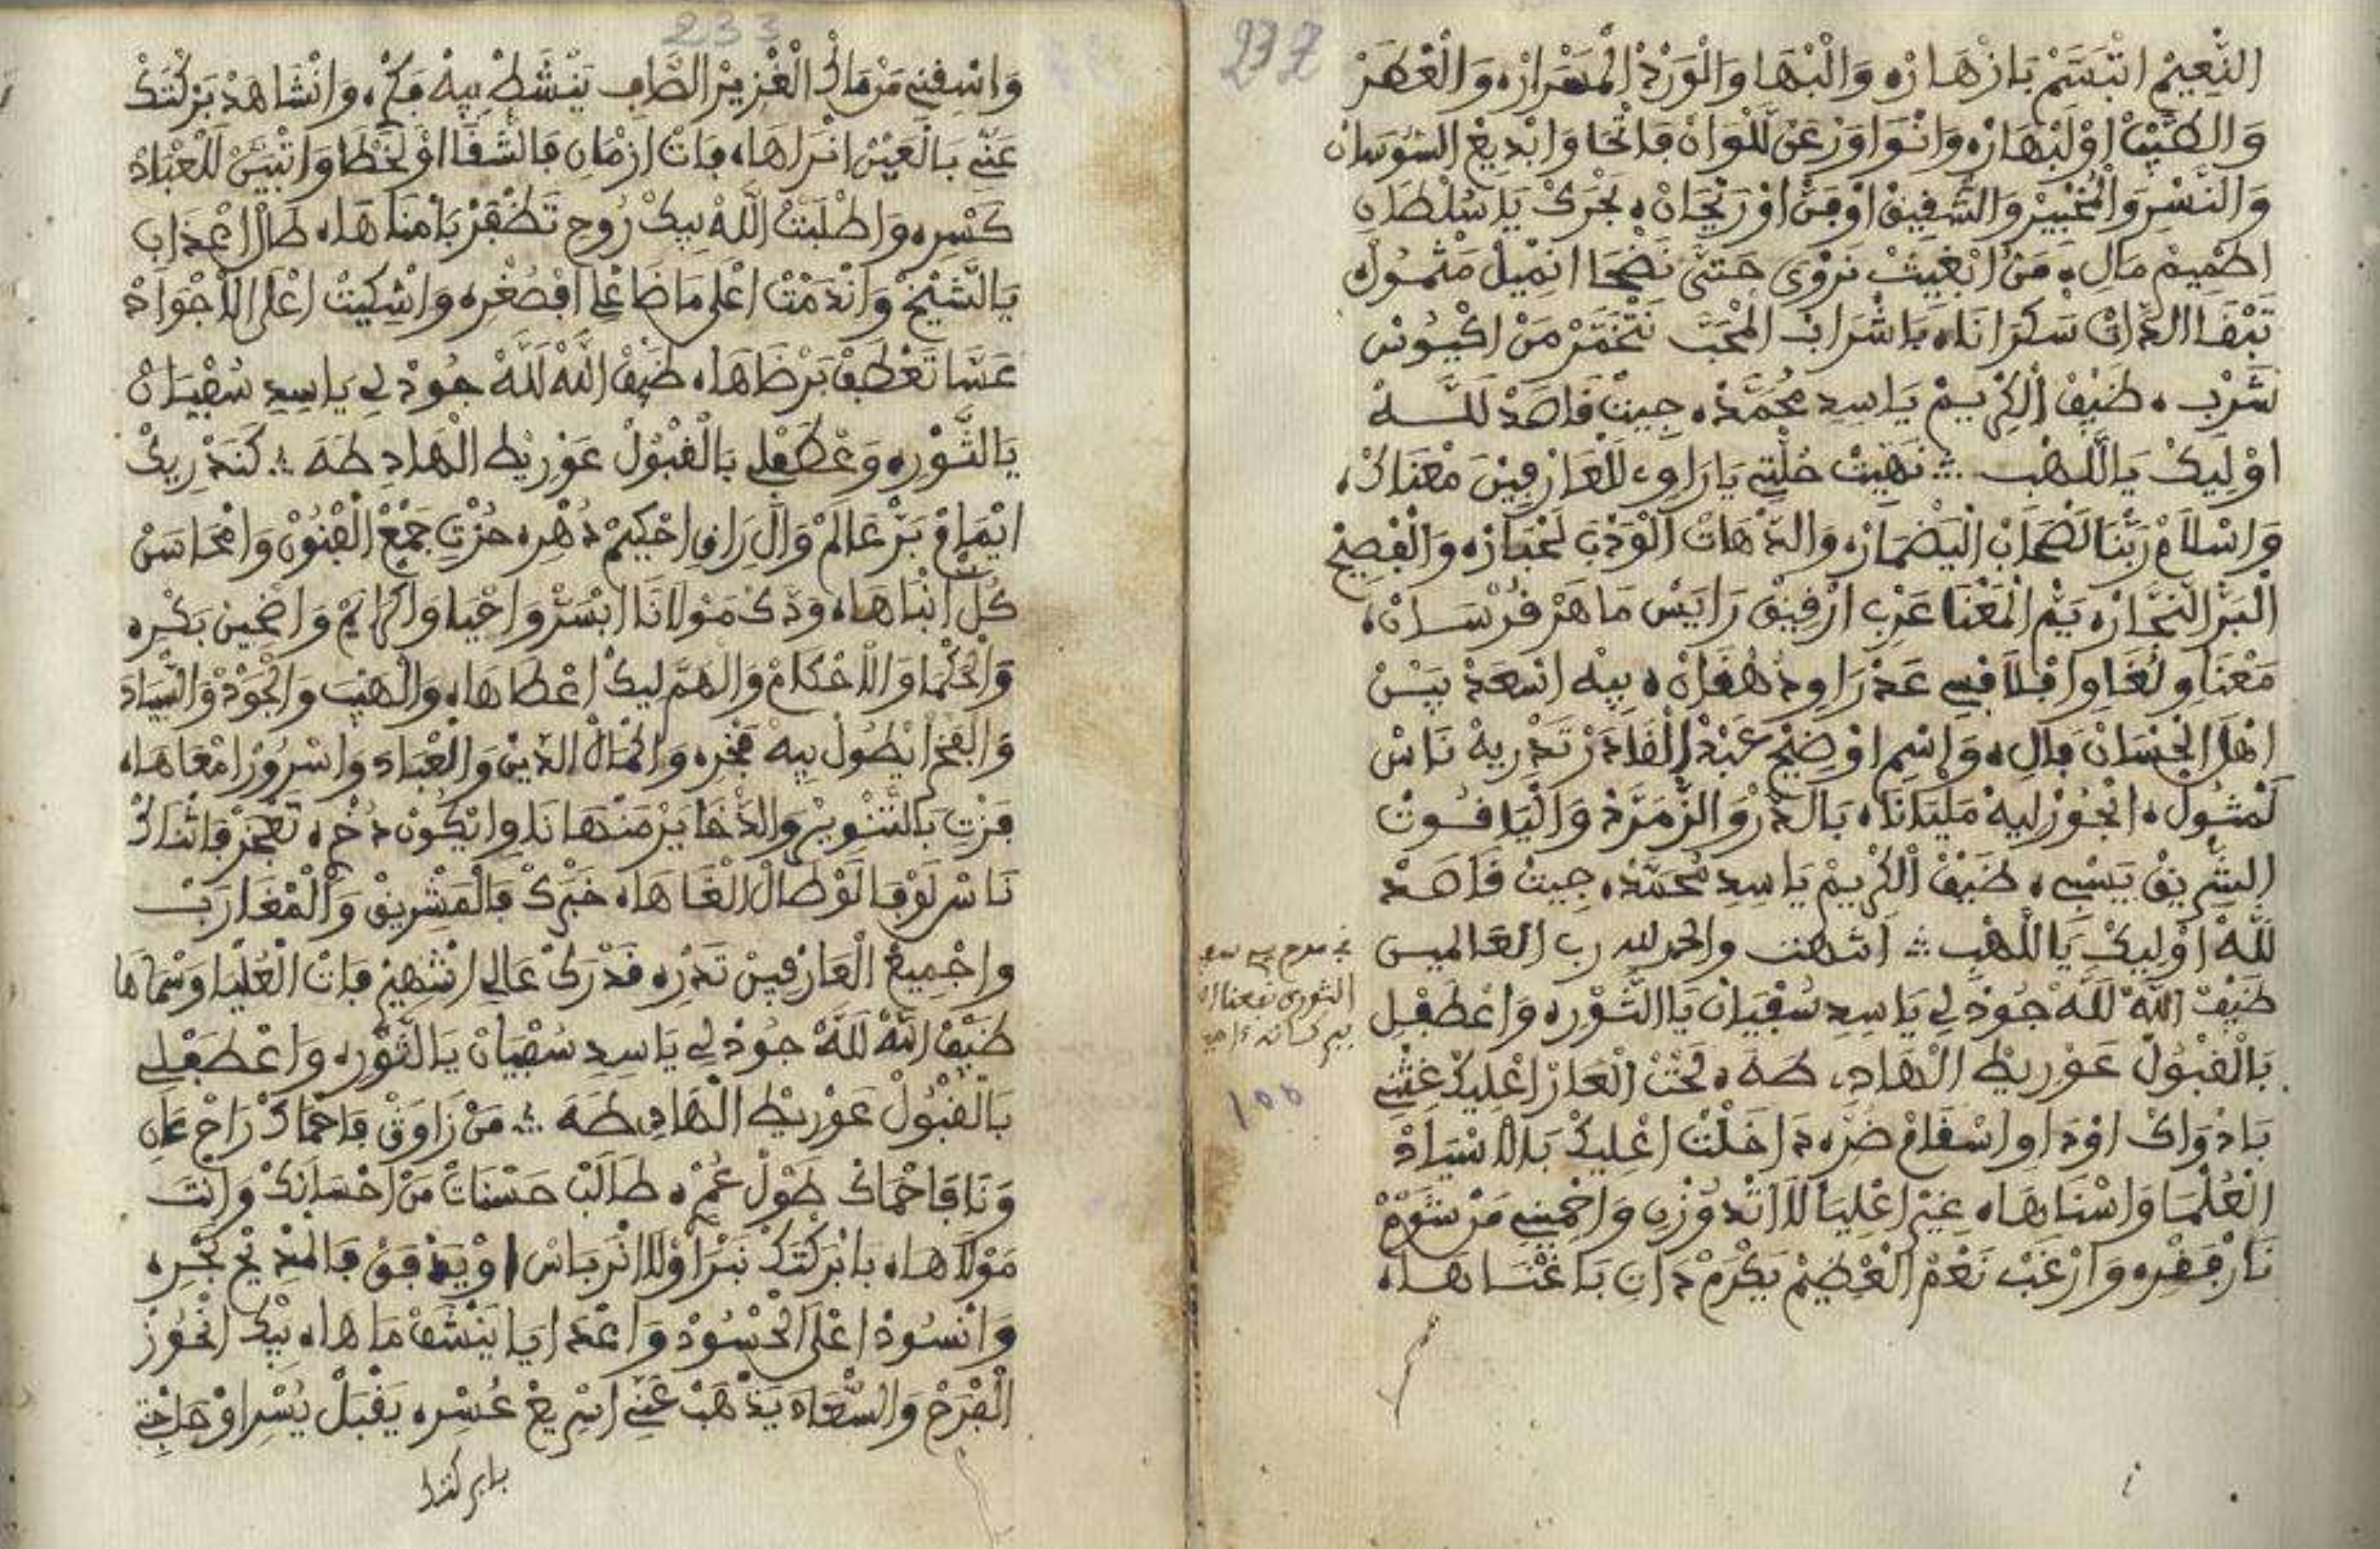 237
النعيم ابتسم بازهاره والبها والورد المسراره والعطر
والطيب اولبهاره وانواور عن للوان فاتحا وابديع السوسان
والنسر والخبير والشقيق اوفن اوريحان بحرك ياسلطان
اطميم مال من ابغيت نروى حتى نضحا انميل مثمول
تبقا الذات سكرانا باشراب المحب نتخمر من اكيوس
شرب ضيف الكريم ياسيد محمد جيت قاصد لله
اوليك ياللهب نهيت حلتي ياراوي للعارفين معناك
واسلام ربنا لصحاب اليضماره والدهات الوذب لحباره والفصيح
البر النحاره يتم المعنا عرب ارفيق رايس ماهر فرسان
معناو لغاو اقلا فسي عدراو دهقان بيه اسعد بيس
اهل الحسان قال واسم اوضيح عبد القادر تدريه ناس
لمثول انحوز ليه مليانا بالدر والزمرد والياقوت
الشريق يسبي ضيف الكريم ياسيد محمد جيت قاصد
لله اوليك ياللهب انتهت والحمد لله رب العالمين
في مدح سي
الثوري نفعنا الله
ببركاته ءامين
100
ضيف الله لله جود لي ياسيد سفيان ياالثوره واعطفلي
بالقبول عوريط الهاد طه تحت العار اعليك غثني
بادواك اودا واسقام ضره داخلت اعليك بالاسياد
العلما واسناها غير اعليا لا اتدوزن واحميني من شوم
نار فقره وارغب نعم العظيم يكرم دان باغناها
233
واسقني من ماك الغزير الصاف ينشط بيه فكره وانشاهد بركتك
عني بالعين انراها فات ازمان فالشفا اولخطا واتبين للعباد
كسره واطلبت الله بيك روح تظفر بامناها طال اعذاب
يالشيخ واندمت اعلى ماضاع لي افصغره واشكيت اعلى الاجواد
عسا تعطف برضاها ضيف الله لله جود لي ياسيد سفيان
يالثوره وعطفلي بالقبول عوريط الهاد طه كندريك
ايمام بر عالم وال راف احكيم دهره حزت جمع الفنون وامحاسن
كل انباها ودك مولانا ابسر واحيا واكرايم واضحين بكره
والحكما والاحكام والهم ليك اعطاها والهيب والجود والسياد
والفخر ايطول بيه فخره والكمال الدين والعباد واسرور امعاها
فزت بالتنوير والدخايز من دهانا وايكون دخره تعجز فاثناك
ناس لوفا لو طال الغاها خبرك فالمشريق والمغارب
واجميع العارفين تدره قدرك عالي اشهير فات العليا وسماها
ضيف الله لله جود لي ياسيد سفيان يالثوره واعطفلي
بالقبول عوريط الهاد طه من زاوق فاحماك راح عان
ونا فاحماك طول عمره طالب حسنات من احسانك وانت
مولاها بابركتك نبرا ولا انرباس اويدفق فالمديح بحره
وانسود اعلى الحسود واعدايا ينشف ماها بيك انحوز
الفرح والسعاد يذهب عني اسريع عسره يقبل يسر اوحاجتي
بابركتك